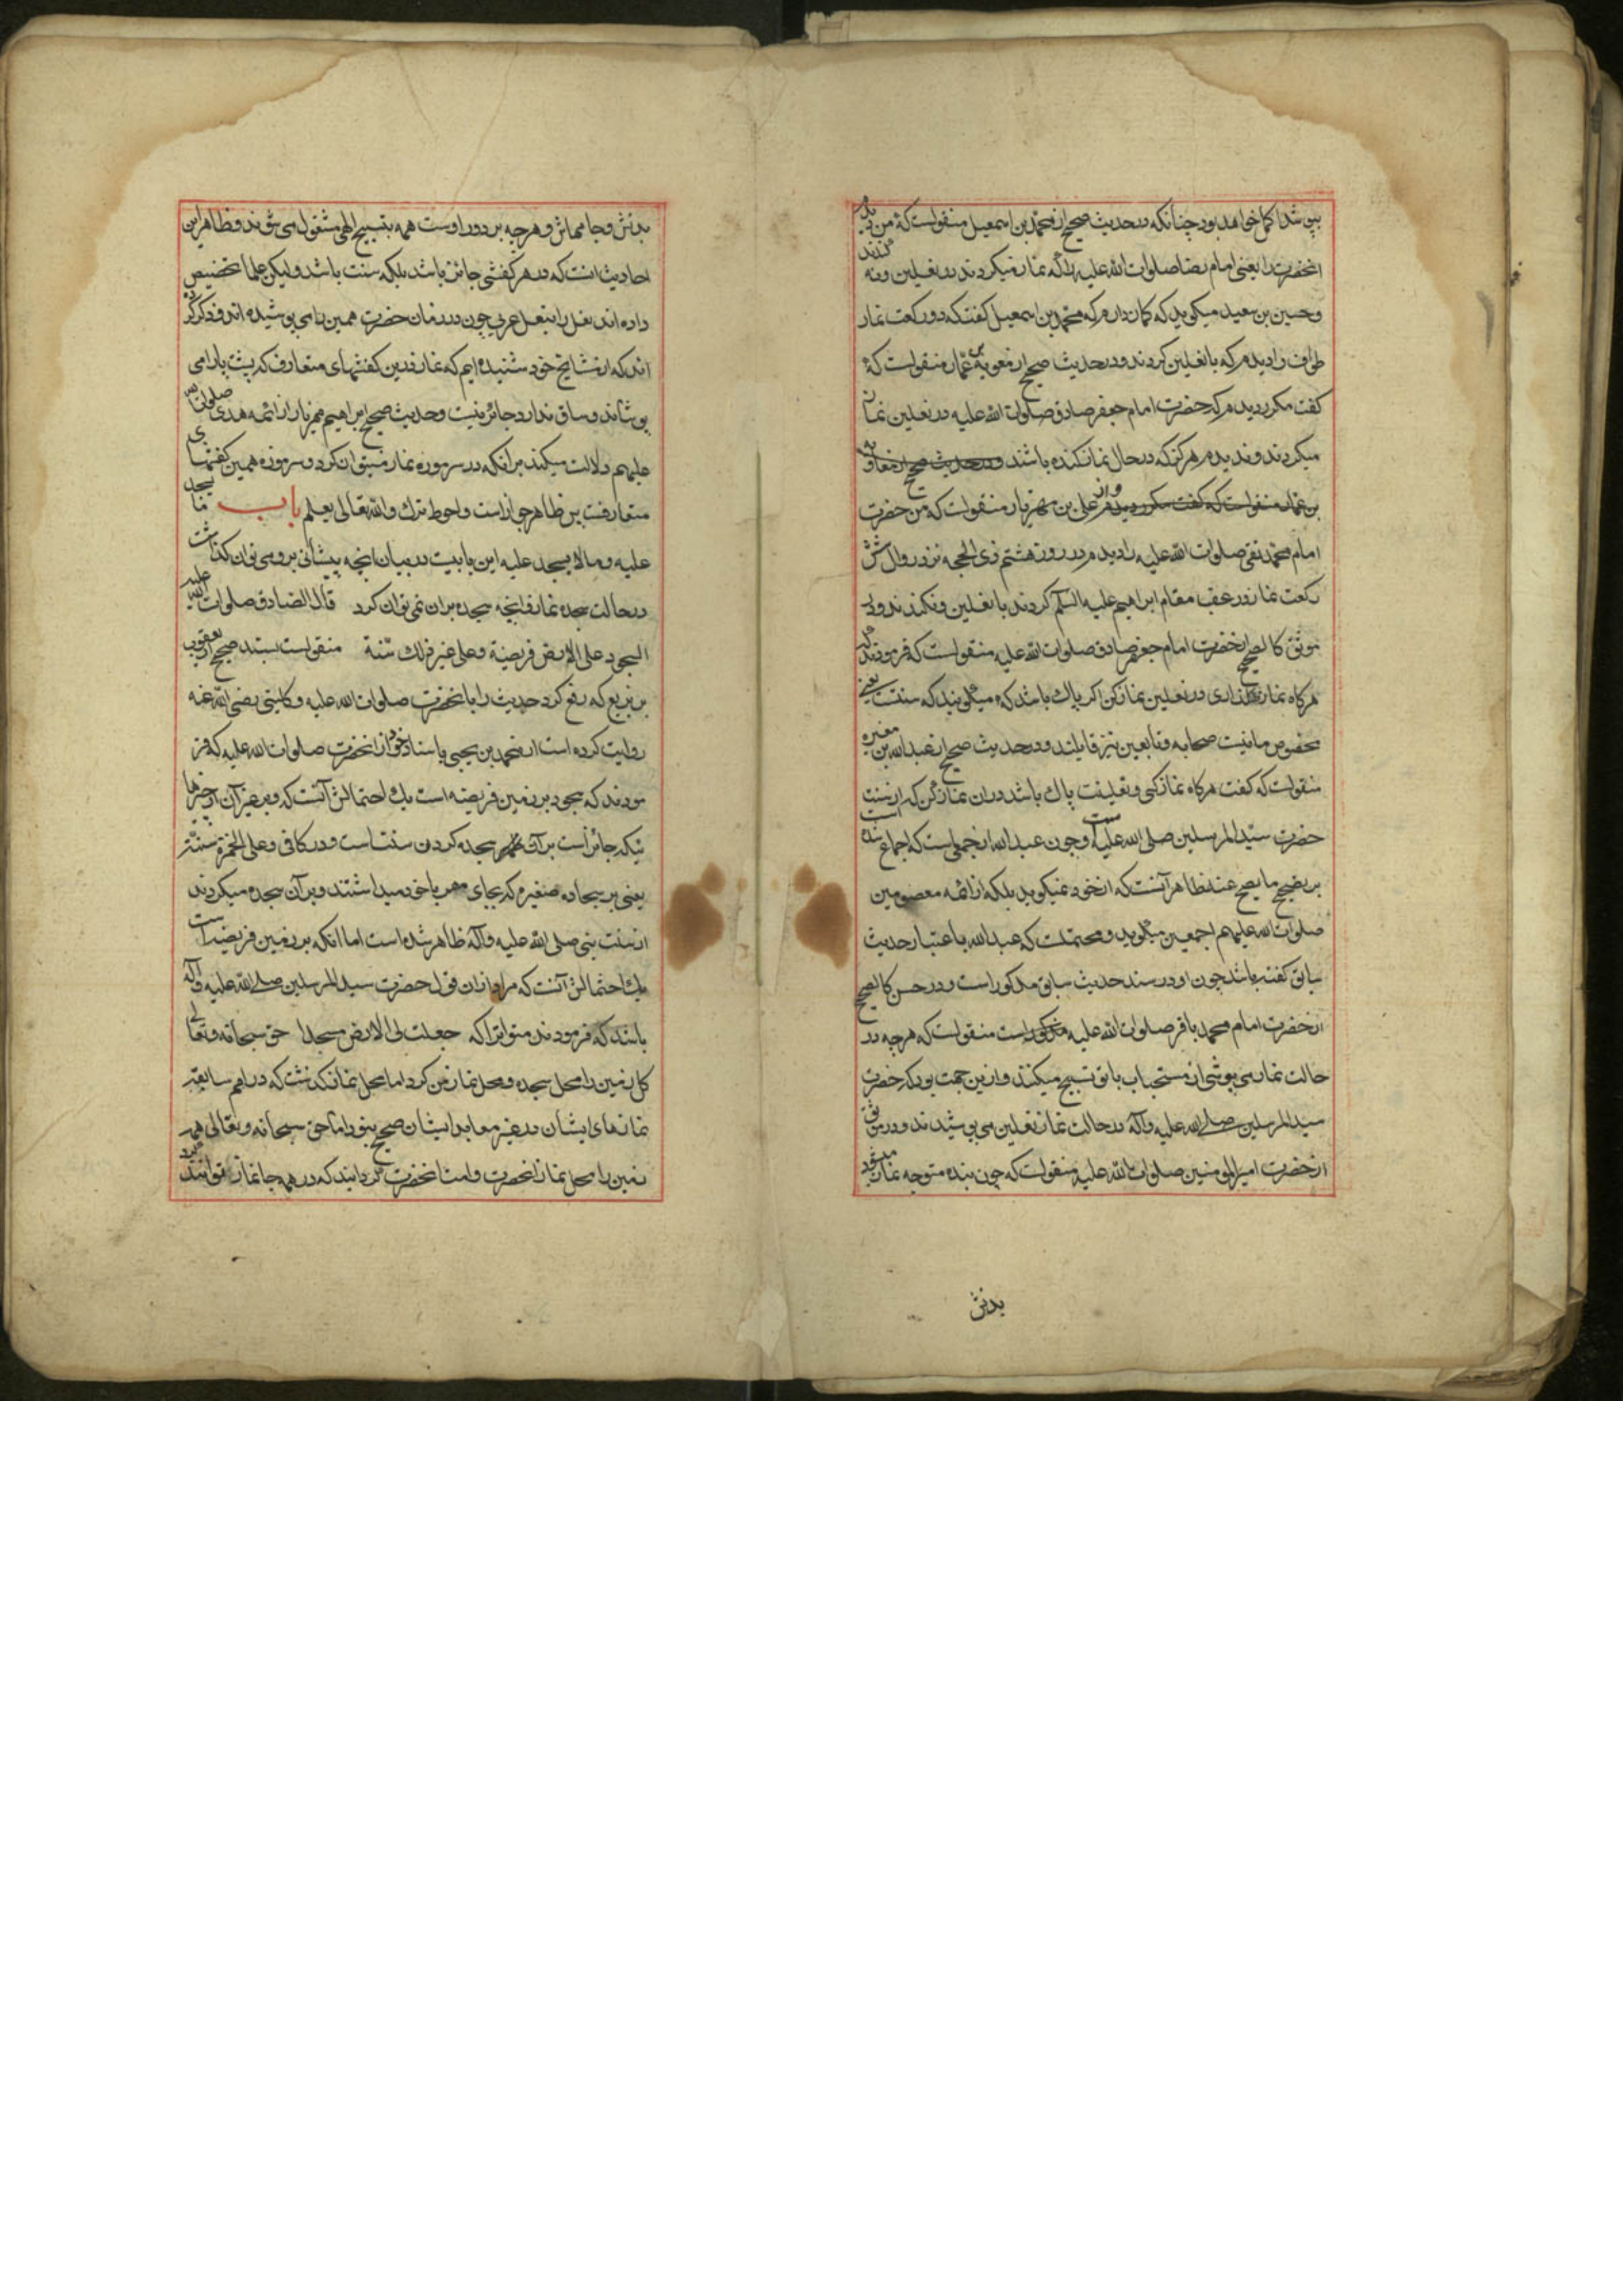 پوشد اکمل خواهد بود چنانکه در حدیث صحیح از محمد بن اسمعیل منقولست که من دیدم
انحضرت را یعنی امام رضا صلوات الله علیه را که نماز میکردند در نعلین و نه کندند
و حسین بن سعید میکوید که کمان دارم که محمد بن اسمعیل کفت که دو رکعت نماز
طواف را دیدم که با نعلین کردند و در حدیث صحیح از معویة بن عمار منقولست که
کفت مکرر دیدم که حضرت امام جعفر صادق صلوات الله علیه در نعلین نماز
میکردند و ندیدم هرکز که در حال نماز کنده باشند و در حدیث صحیح از معاویه
بن عمار منقولست که کفت مکرر دیدم و از علی بن مهزیار منقولست که من حضرت
امام محمد تقی صلوات الله علیه را دیدم در روز هشتم ذی الحجه نزد زوال شش
رکعت نماز در عقب مقام ابراهیم علیه السلم کردند با نعلین و نکندند و در
موثق کالصحیح از حضرت امام جعفر صادق صلوات الله علیه منقولست که فرمودند که
هرکاه نماز گذاری در نعلین نماز کن اکر پاک باشد که میکویند که سنتست یعنی
مخصوص ما نیست صحابه و تابعین نیز قایلند و در حدیث صحیح از عبد الله بن مغیره
منقولست که کفت هرکاه نماز کنی و نعلینت پاک باشد در ان نماز کن که از سنت
حضرت سید المرسلین صلی الله علیه است و چون عبد الله از جمعی است که اجماع شده است
بر تصحیح ما یصح عنه ظاهر آنست که از خود نمیکوید بلکه از ائمه معصومین
صلوات الله علیهم اجمعین میکوید و محتملست که عبد الله باعتبار حدیث
سابق کفته باشد چون او در سند حدیث سابق مذکور است و در حسن کالصحیح
از حضرت امام محمد باقر صلوات الله علیه مذکور است منقولست که هرچه در
حالت نماز می پوشی از مستحباب با تو تسبیح میکنند و ازین جهت بود که حضرت
سید المرسلین صلی الله علیه و آله در حالت نماز نعلین می پوشیدند و در موثق
از حضرت امیر المومنین صلوات الله علیه منقولست که چون بنده متوجه نماز میشود
بدنش
بدنش و جامهاش و هرچه بر دور اوست همه بتسبیح الهی مشغول می شوند و ظاهر این
احادیث انست که در هر کفشی جائز باشد بلکه سنت باشد ولیکن علما تخصیص
داده اند نعل را بنعل عربی چون در زمان حضرت همین را می پوشیده اند و ذکر کرده
اند که از مشایخ خود شنیده ایم که نماز در این کفشهای متعارف که پشت پا را می
پوشاند و ساق ندارد جائز نیست و حدیث صحیح ابراهیم مهزیار از ائمه هدی صلوات الله
علیهم دلالت میکند برانکه در سرموزه نماز میتوان کرد و سرموزه همین کفشهای
متعارفست پس ظاهر جواز است و احوط ترک و الله تعالی یعلم باب ما یسجد
علیه و ما لا یسجد علیه این بابیست در بیان انچه پیشانی بر وی توان کذاشت
در حالت سجده نماز و انچه سجده بران نمی توان کرد قال الصادق صلوات الله علیه
السجود علی الارض فریضة و علی غیر ذلک سنة منقولست بسند صحیح از یعقوب
بن یزید که رفع کرد حدیث را بانحضرت صلوات الله علیه و کلینی رضی الله عنه
روایت کرده است از محمد بن یحیی باسناد خود از انحضرت صلوات الله علیه که فر
مودند که سجود بر زمین فریضه است یک احتمالش آنست که و بر غیر آن از چیزها
ئیکه جائز است بر آن سجده کردن سنت است و در کافی و علی الخمرة سنة
یعنی بر سجاده صغیره که بجای مهر با خود میداشتند و بر آن سجده میکردند
از سنت نبی صلی الله علیه و آله ظاهر شده است اما انکه بر زمین فریضه است
یک احتمالش آنست که مراد ازان قول حضرت سید المرسلین صلی الله علیه و آله
باشد که فرمودند متواترا که جعلت لی الارض مسجدا حق سبحانه و تعالی
کل زمین را محل سجده و محل نماز من کرد اما محل نماز کذشت که در امم سابقه
نمازهای ایشان در غیر معابد ایشان صحیح نبود اما حق سبحانه و تعالی همه
زمین را محل نماز انحضرت و امت انحضرت کردانید که در همه جا نماز توانند کرد